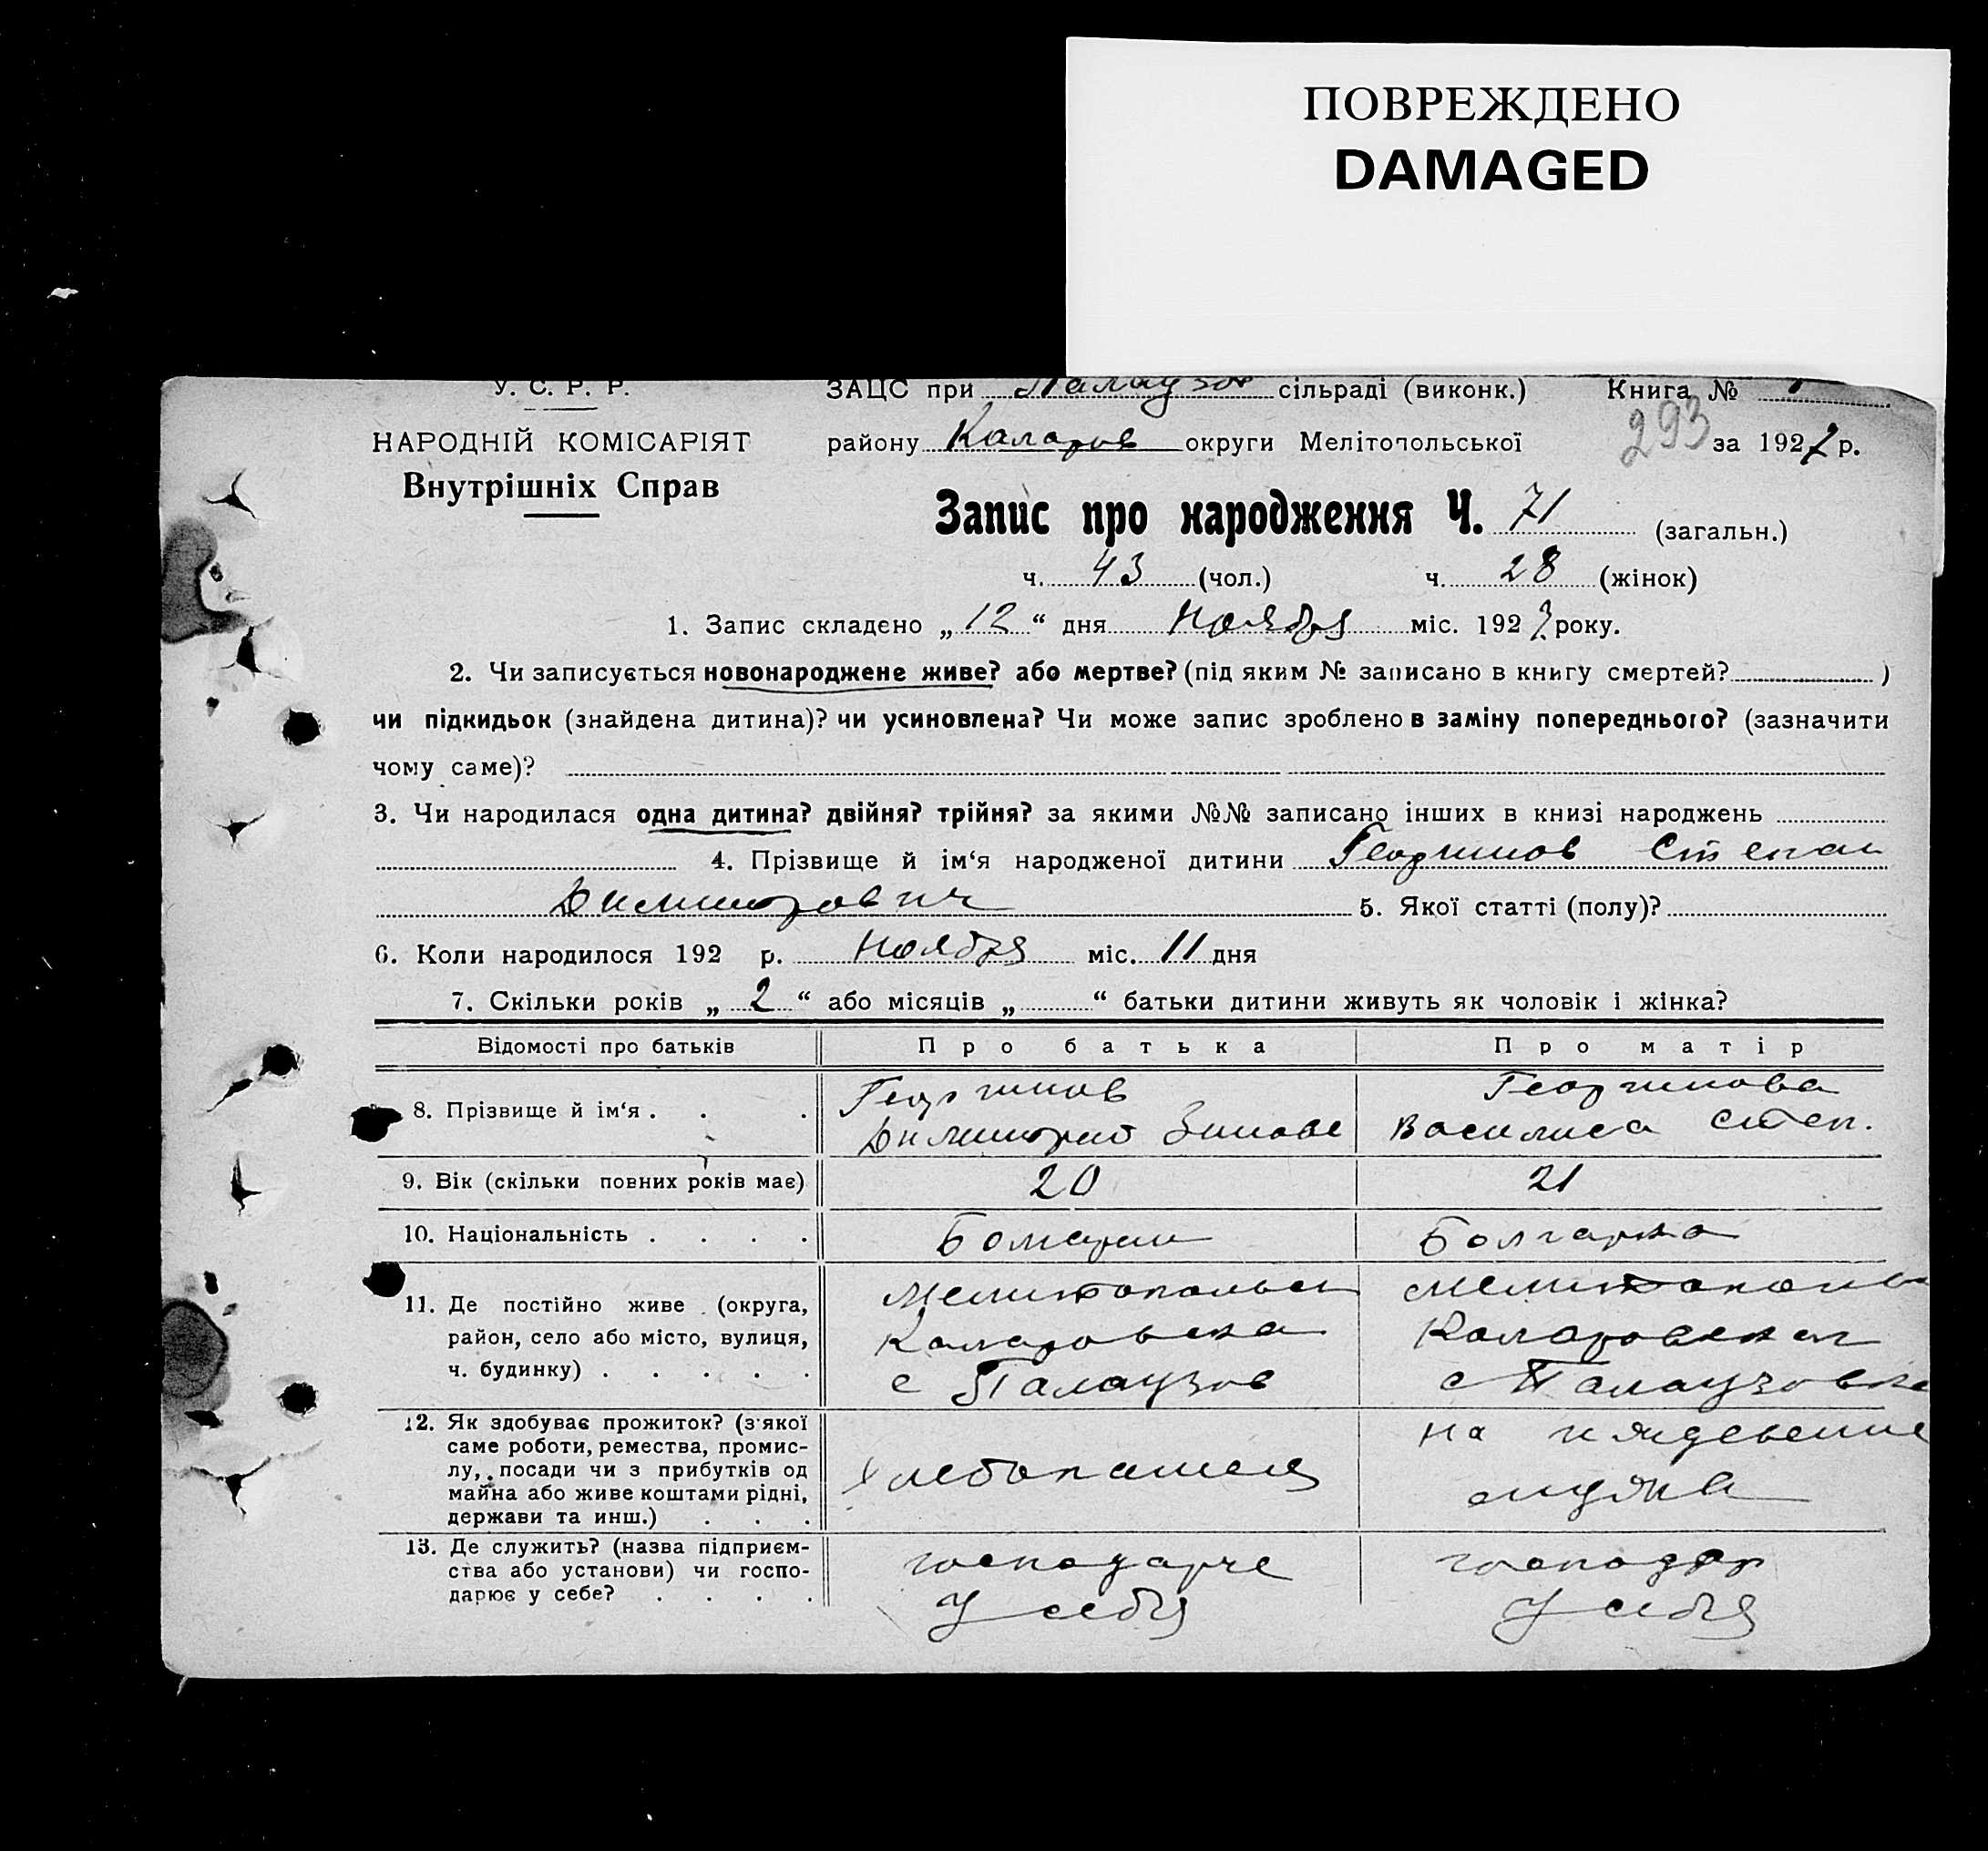 ПОВРЕЖДЕНО
DAMAGED
У. С. Р. Р. ЗАЦС при Палаузов сільраді (виконк.) Книга №
НАРОДНІЙ КОМІСАРІЯТ району Коларов округи Мелітопольської 293 за 1927 р.
Внутрішніх Справ
Запис про народження Ч. 71 (загальн.)
ч. 43 (чол.) ч. 28 (жінок)
1. Запис складено „ 12 “ дня Ноября міс. 1927 року.
2. Чи записується новонароджене живе? або мертве? (під яким № записано в книгу смертей? )
чи підкидьок (знайдена дитина)? чи усиновлена? Чи може запис зроблено в заміну попереднього? (зазначити
чому саме)?
3. Чи народилася одна дитина? двійня? трійня? за якими №№ записано інших в книзі народжень
4. Прізвище й ім‘я народженої дитини Георгинов Степан
Димитрович 5. Якої статті (полу)?
6. Коли народилося 192 р. Ноября міс. 11 дня
7. Скільки років „ 2 “ або місяців „ “ батьки дитини живуть як чоловік і жінка?
Відомості про батьків Про батька Про матір
8. Прізвище й ім‘я . . . Георгинов Георгинова
Димитрий Василиса Степ.
9. Вік (скільки повних років має) 20 21
10. Національність . . . . Болгарин Болгарка
11. Де постійно живе (округа, Мелитопольск Мелитополь
район, село або місто, вулиця, Коларовска Коларовская
ч. будинку) . . . . . с Палаузов с Палаузовка
12. Як здобуває прожиток? (з'якої на иждевение
саме роботи, ремества, промис-
лу, посади чи з прибутків од хлебопашец
майна або живе коштами рідні, мужа
держави та инш.) . . .
13. Де служить? (назва підприєм- господарче господар
ства або установи) чи госпо-
дарює у себе? . . . . У себя У себя